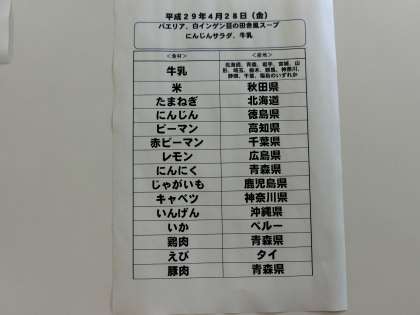 平成29年4月28日（金）
パエリア、白インゲン豆の田舎風スープ
にんじんサラダ、牛乳
＜食材＞ ＜産地＞
牛乳 北海道、青森、岩手、宮城、山形、埼玉、栃木、群馬、神奈川、静岡、千葉、福島のいずれか
米 秋田県
たまねぎ 北海道
にんじん 徳島県
ピーマン 高知県
赤ピーマン 千葉県
レモン 広島県
にんにく 青森県
じゃがいも 鹿児島県
キャベツ 神奈川県
いんげん 沖縄県
いか ペルー
鶏肉 青森県
えび タイ
豚肉 青森県